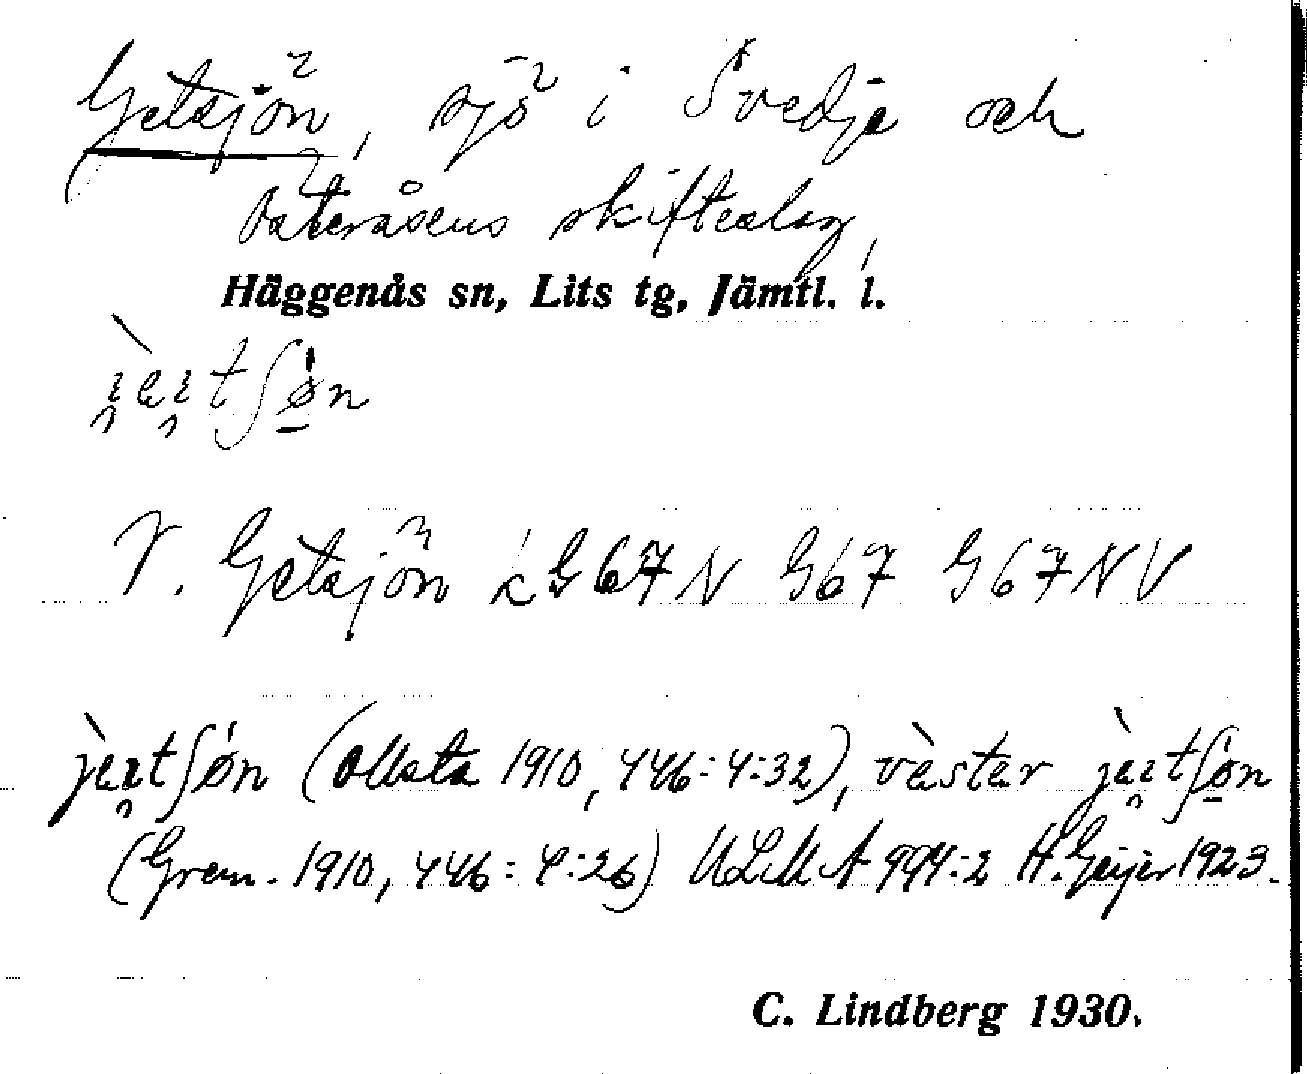 Getsjön, sjö i Svedje och
Österåsens skifteslag,
Häggenås sn, Lits tg, Jämtl. l.
i̯èi̯tʃø̠n
V. Getsjön k G67N G67 G67NV
jèi̯tʃøn (Ollsta 1910, 446:4:32), vàstər jèi̯tʃø̠n
(Gren. 1910, 446:4:26) ULMA 994:2 H. Geijer 1923.
C. Lindberg 1930.